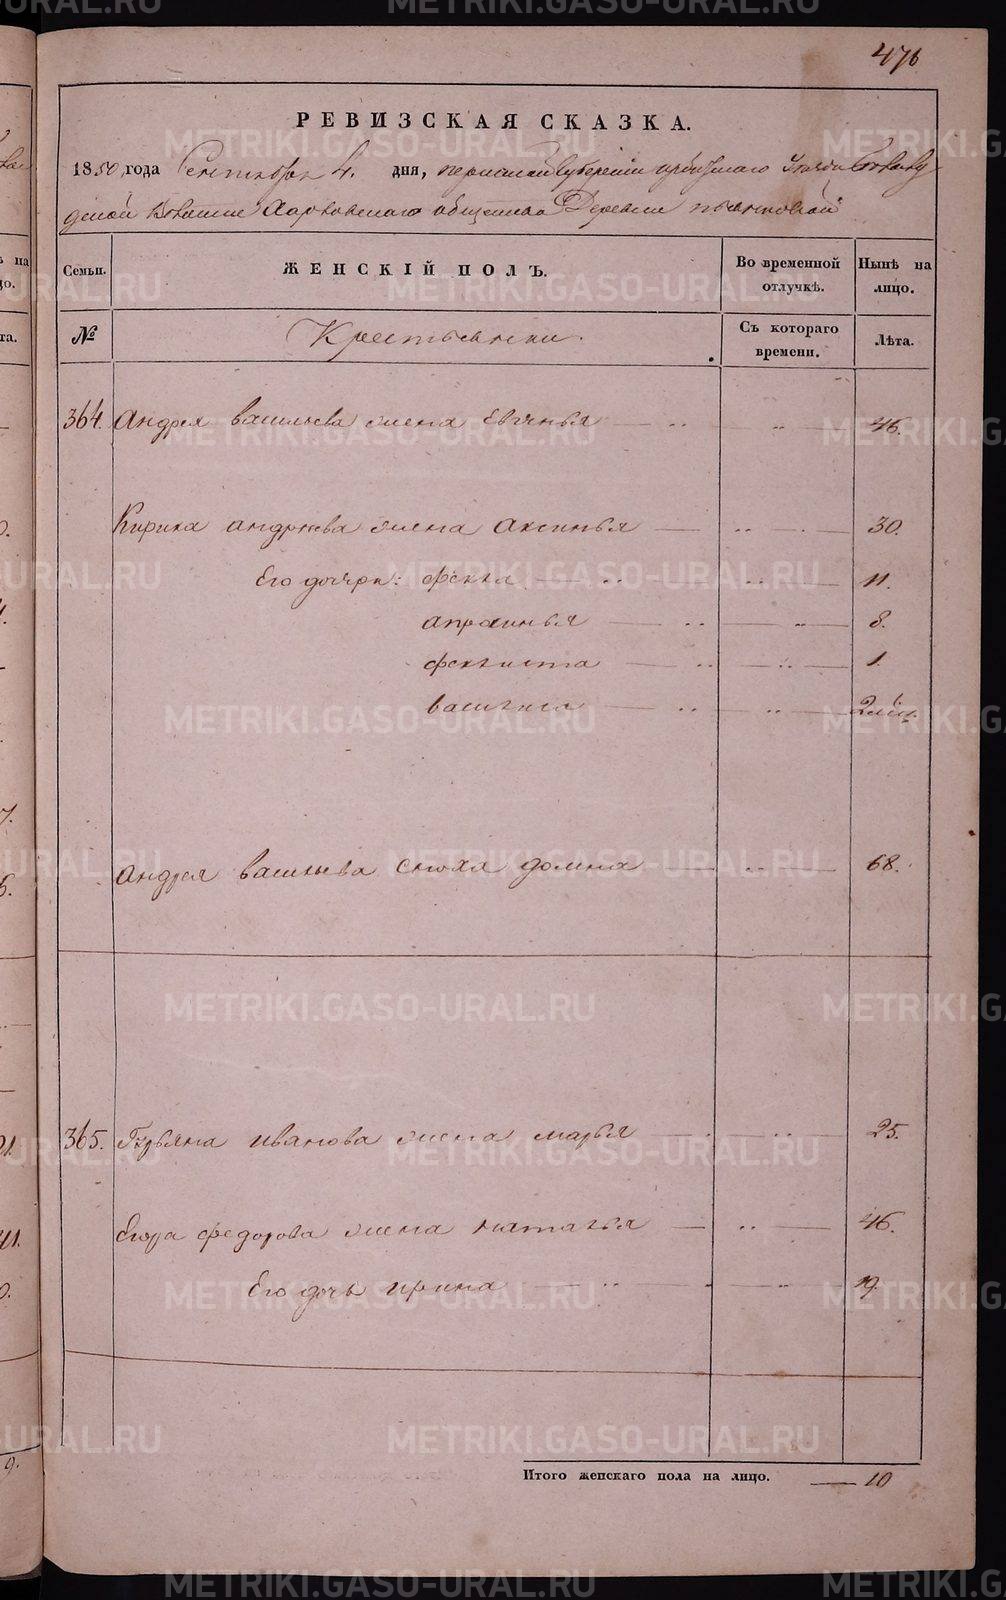 476
РЕВИЗСКАЯ СКАЗКА.
1850 года Сентября 4. дня, пермской Губернии ирбитскаго Уезда
Волости Харловскаго общества Деревни
Семьи. ЖЕНСКІЙ ПОЛЪ. Во временной отлучкѣ. Нынѣ на лицо.
№ Крестьянки. Съ котораго времени. Лѣта.
364. Андрея васильева жена Евгенья 46.
Кирика андреева жена Аксинья 30.
Его дочери: фекла 11.
апросинья 8.
феклиста 1.
василиса 2 мец.
Андрея васильева сноха домна 68.
365. Гурьяна иванова жена марья 25.
Егора федорова жена наталья 46.
Его дочь ирина 19.
Итого женскаго пола на лицо. 10
METRIKI.GASO-URAL.RU